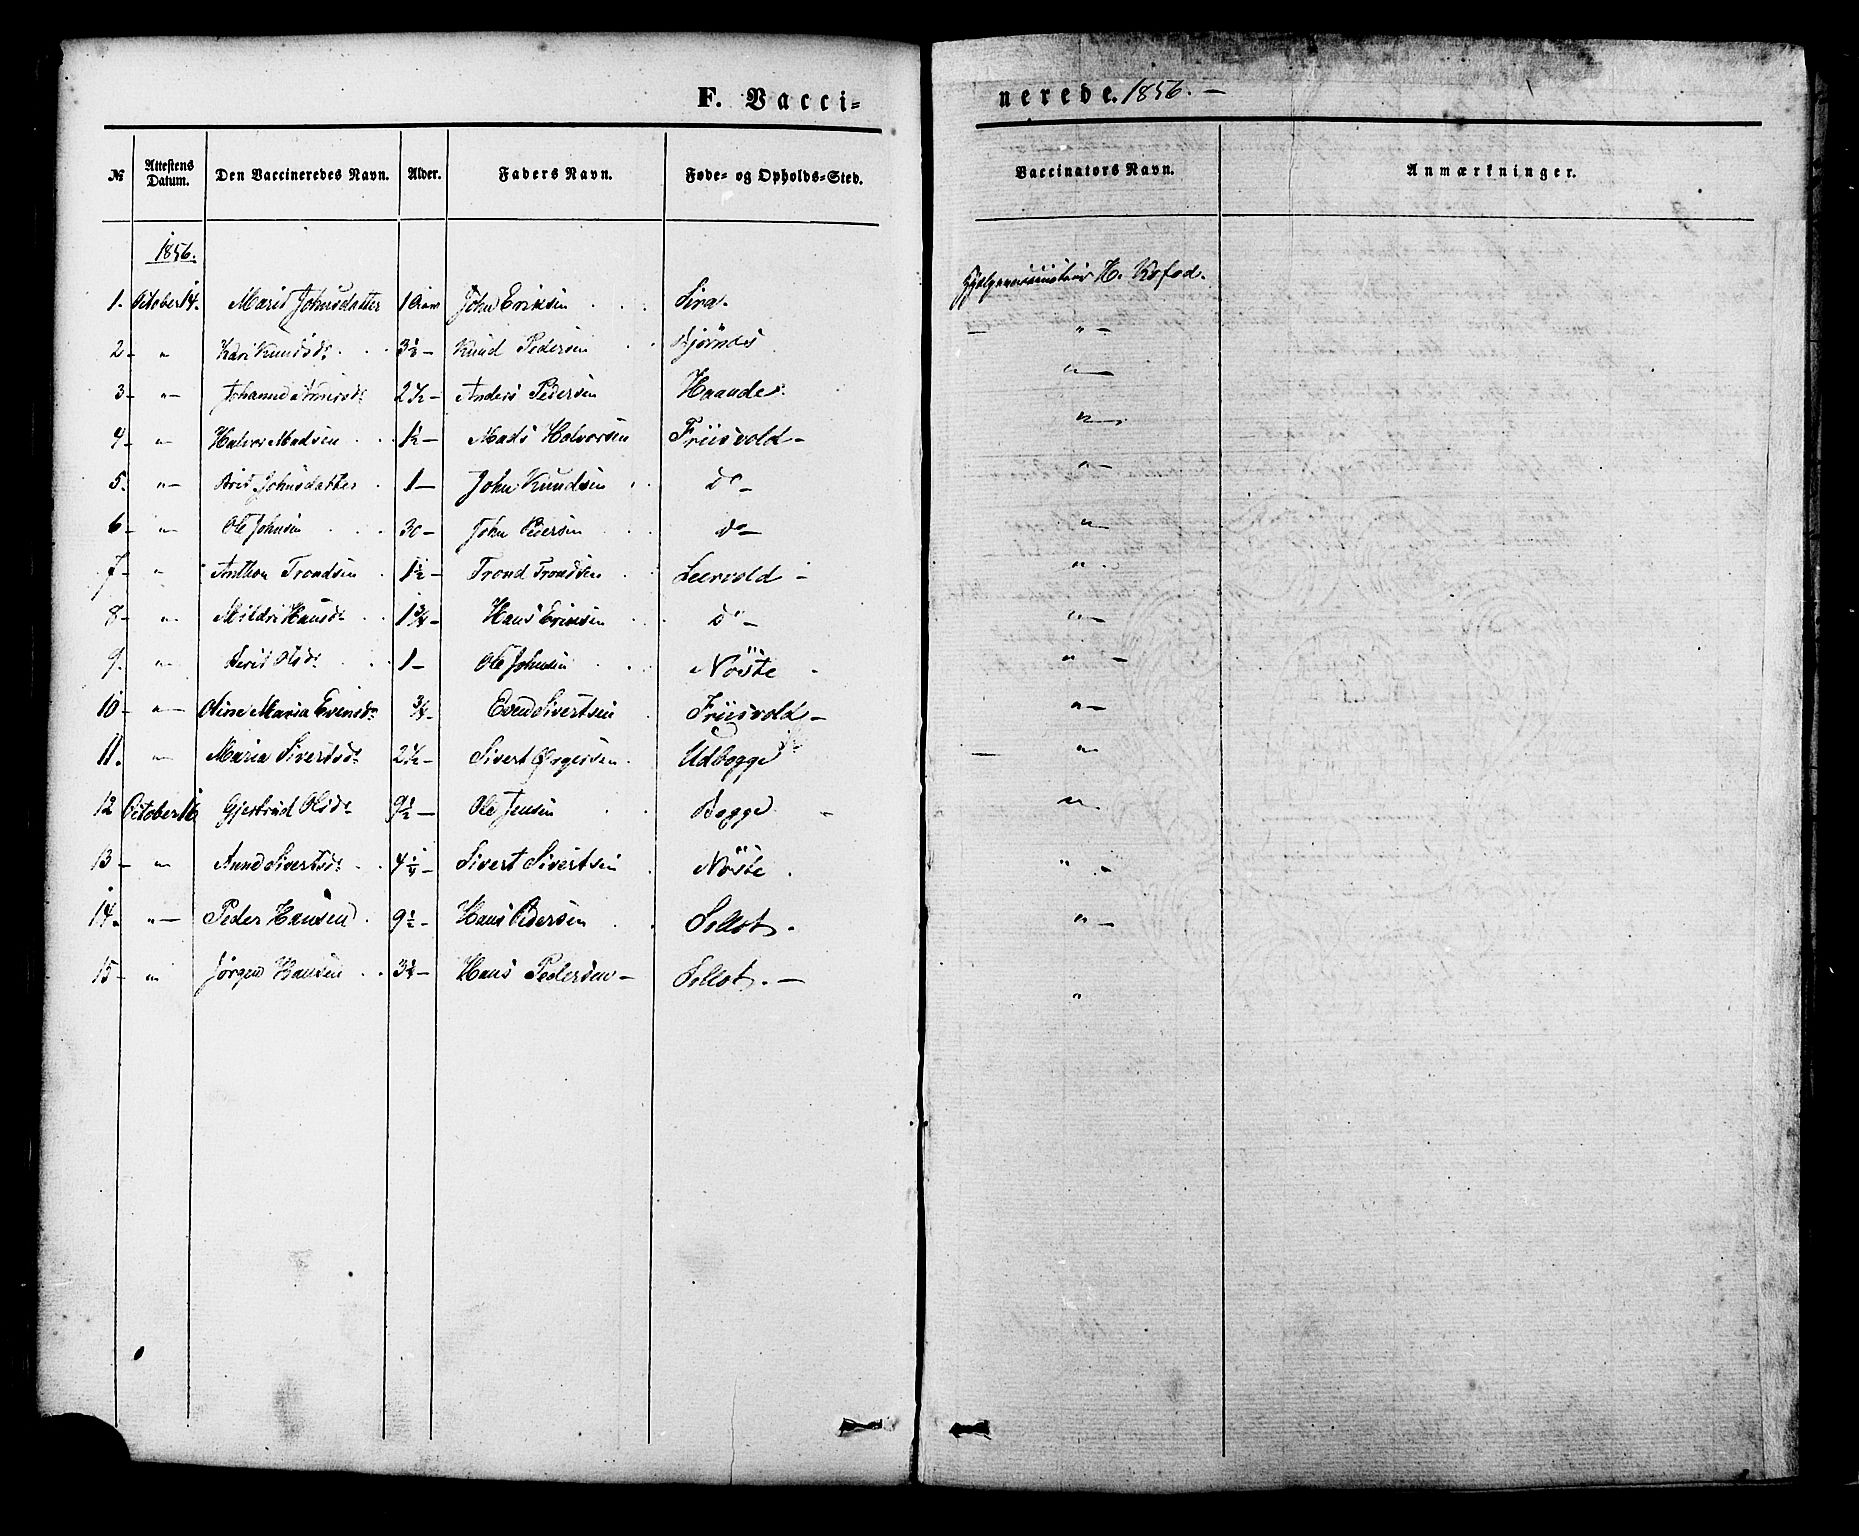 F. Vacci-
nerede. 1856. –
№ Attestens Datum. Den Vaccineredes Navn. Alder. Faders Navn. Føde- og Opholds-Sted. Vaccinators Navn. Anmærkninger.
1856.
1. October 14. Marit Johnsdatter 1 John Eriksen Lira. H. Kofod.
2 – " Kari Knudsdr 3½ – Knud Pedersen Bjørnes " –
3 – " – Johanne Andersdr 2½ – Anders Pedersen Haande " –
4 – " – Halvor Madsen 1½ – Mads Halvorsen Friisvold – " –
5. " – Arit Johnsdatter 1 – John Knudsen do – " –
6 – " – Ole Johnsen 30 – John Pedersen do – " –
7 – " Anthon Trondsen 1½ – Trond Trondsen Leervold – " –
8 – " – Mildri Hansdr 1¾ – Hans Eriksen do – " –
9. " – Berit Olsdr 1 – Ole Johnsen Nöste – " –
10 – " – Oline Maria Evensdr ¾ – Even Sivertsen Friisvold – " –
11. " – Maria Sivertsdr 2½ – Sivert Ørgersen Udbogge – "
12 October 16 Gjertrud Olsdr 9½ – Ole Jensen Bogge – "
13 – " Anne Sivertsdr 4¼ – Sivert Sivertsen Nöste. " –
14. " – Peder Hansen 9½ – Hans Pedersen Sellot. " –
15 – " Jørgen Hansen 3¾ – Hans Pedersen – Sellot. – "